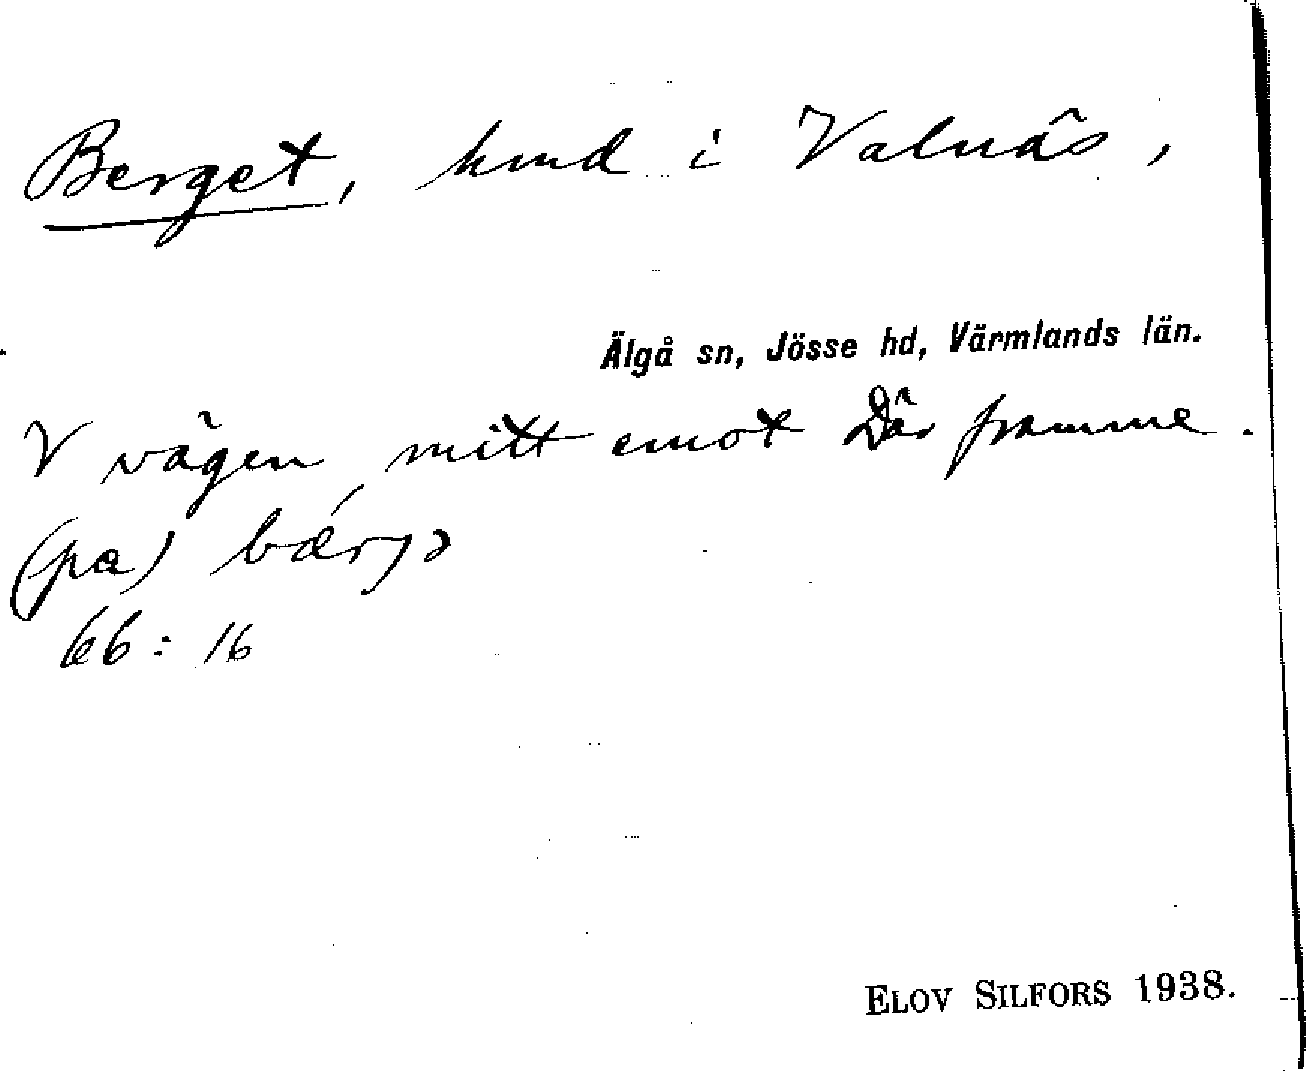 Berget, hmd i Valnäs,
Älgå sn, Jösse hd, Värmlands län.
V vägen mitt emot Där framme.
(pa) bǽrjə
66:16
ELOV SILFORS 1938.